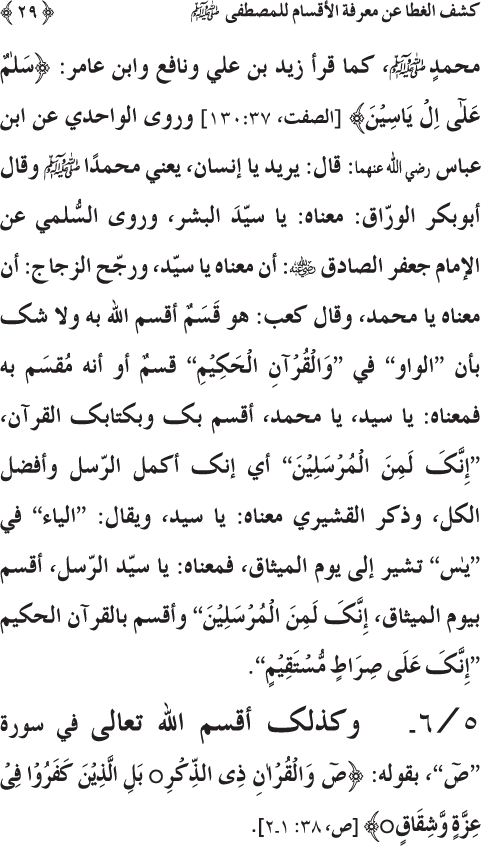 كشف الغطا عن معرفة الأقسام للمصطفى ﷺ ﴿٢٩﴾
محمدٍ ﷺ، كما قرأ زيد بن علي ونافع وابن عامر: ﴿سَلٰمٌ
عَلٰٓى اِلْ يَاسِيْنَ﴾ [الصفت، ٣٧:١٣٠] وروى الواحدي عن ابن
عباس رضي الله عنهما: قال: يريد يا إنسان، يعني محمدًا ﷺ وقال
أبوبكر الورّاق: معناه: يا سيّدَ البشر، وروى السُّلمي عن
الإمام جعفر الصادق ﵁: أن معناه يا سيّد، ورجّح الزجاج: أن
معناه يا محمد، وقال كعب: هو قَسَمٌ أقسم الله به ولا شک
بأن ”الواو“ في ”وَالْقُرْآنِ الْحَكِيْمِ“ قسمٌ أو أنه مُقسَم به
فمعناه: يا سيد، يا محمد، أقسم بک وبكتابک القرآن،
”إِنَّکَ لَمِنَ الْمُرْسَلِيْنَ“ أي إنک أكمل الرّسل وأفضل
الكل، وذكر القشيري معناه: يا سيد، ويقال: ”الياء“ في
”يٰس“ تشير إلى يوم الميثاق، فمعناه: يا سيّد الرّسل، أقسم
بيوم الميثاق، إِنَّکَ لَمِنَ الْمُرْسَلِيْنَ“ وأقسم بالقرآن الحكيم
”إِنَّکَ عَلَى صِرَاطٍ مُّسْتَقِيْمٍ“.
٥/٦۔ وكذلک أقسم الله تعالى في سورة
”صٓ“، بقوله: ﴿صٓ وَالْقُرْاٰنِ ذِى الذِّكْرِ○ بَلِ الَّذِيْنَ كَفَرُوْا فِىْ
عِزَّةٍ وَّشِقَاقٍ○﴾ [ص، ٣٨: ١۔٢].